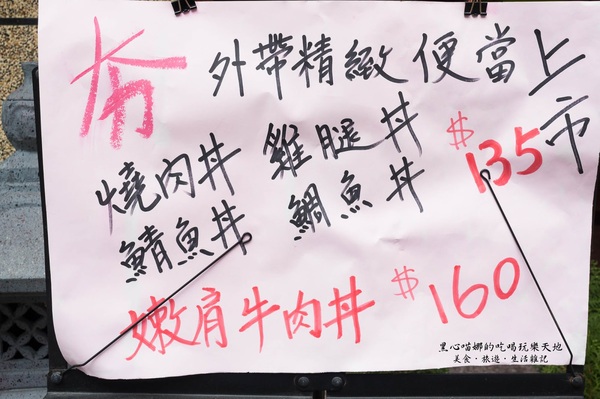 夯 外帶精緻便當上市
燒肉丼 雞腿丼 $135
鯖魚丼 鯛魚丼
嫩肩牛肉丼 $160
黑心喵娜的吃喝玩樂天地
美食‧旅遊‧生活雜記